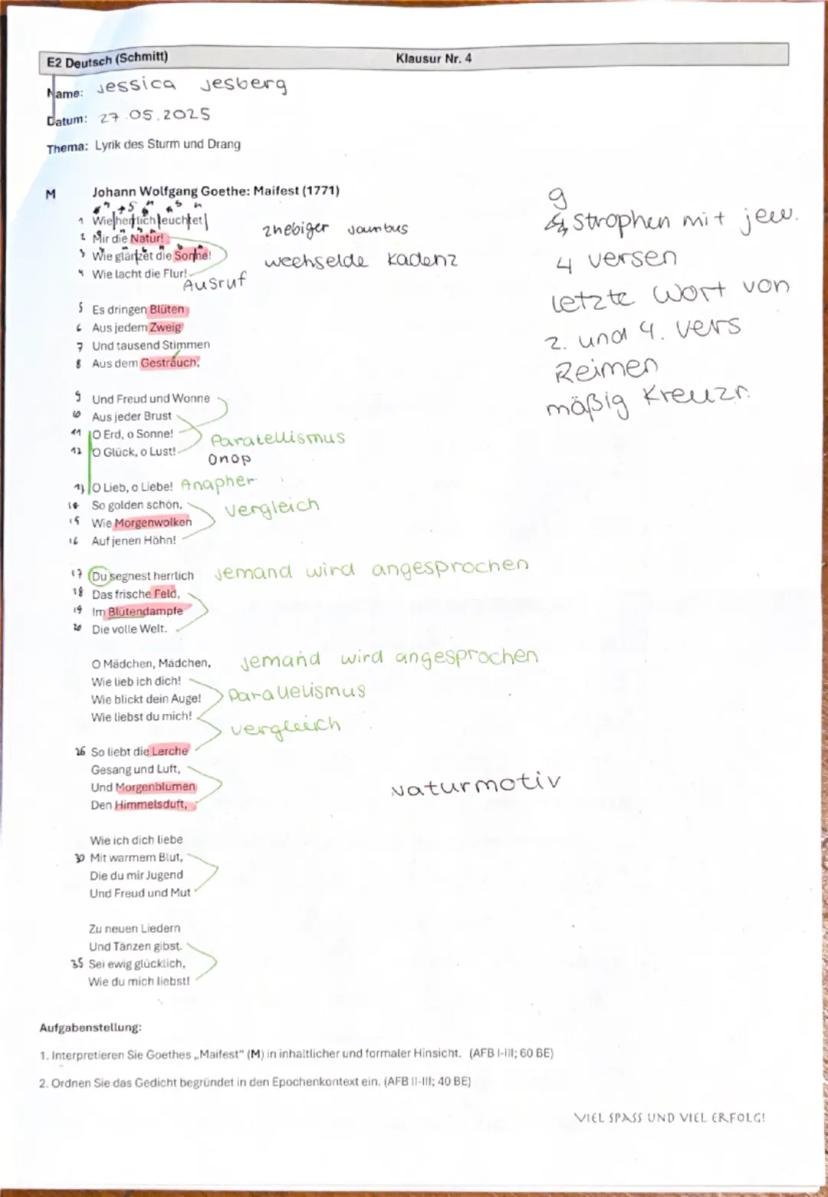 E2 Deutsch (Schmitt) Klausur Nr. 4
Name: Jessica Jesberg
Datum: 27.05.2025
Thema: Lyrik des Sturm und Drang
M Johann Wolfgang Goethe: Maifest (1771)
1 Wie herrlich leuchtet
2 Mir die Natur! 2hebiger Jambus
3 Wie glänzet die Sonne! wechselde Kadenz
4 Wie lacht die Flur! Ausruf
9
Strophen mit jew.
4 versen
letzte Wort von
2. und 4. Vers
Reimen
mäßig Kreuzr.
5 Es dringen Blüten
6 Aus jedem Zweig
7 Und tausend Stimmen
8 Aus dem Gesträuch,
9 Und Freud und Wonne
10 Aus jeder Brust
11 O Erd, o Sonne! Parallelismus
12 O Glück, o Lust! Onop
13 O Lieb, o Liebe! Anapher
14 So golden schön, Vergleich
15 Wie Morgenwolken
16 Auf jenen Höhn!
17 Du segnest herrlich jemand wird angesprochen
18 Das frische Feld,
19 Im Blütendampfe
20 Die volle Welt.
O Mädchen, Mädchen, jemand wird angesprochen
Wie lieb ich dich!
Wie blickt dein Auge! Parallelismus
Wie liebst du mich! vergleich
26 So liebt die Lerche
Gesang und Luft,
Und Morgenblumen Naturmotiv
Den Himmelsduft,
Wie ich dich liebe
30 Mit warmem Blut,
Die du mir Jugend
Und Freud und Mut
Zu neuen Liedern
Und Tänzen gibst.
35 Sei ewig glücklich,
Wie du mich liebst!
Aufgabenstellung:
1. Interpretieren Sie Goethes „Maifest" (M) in inhaltlicher und formaler Hinsicht. (AFB I-III; 60 BE)
2. Ordnen Sie das Gedicht begründet in den Epochenkontext ein. (AFB II-III; 40 BE)
VIEL SPASS UND VIEL ERFOLG!